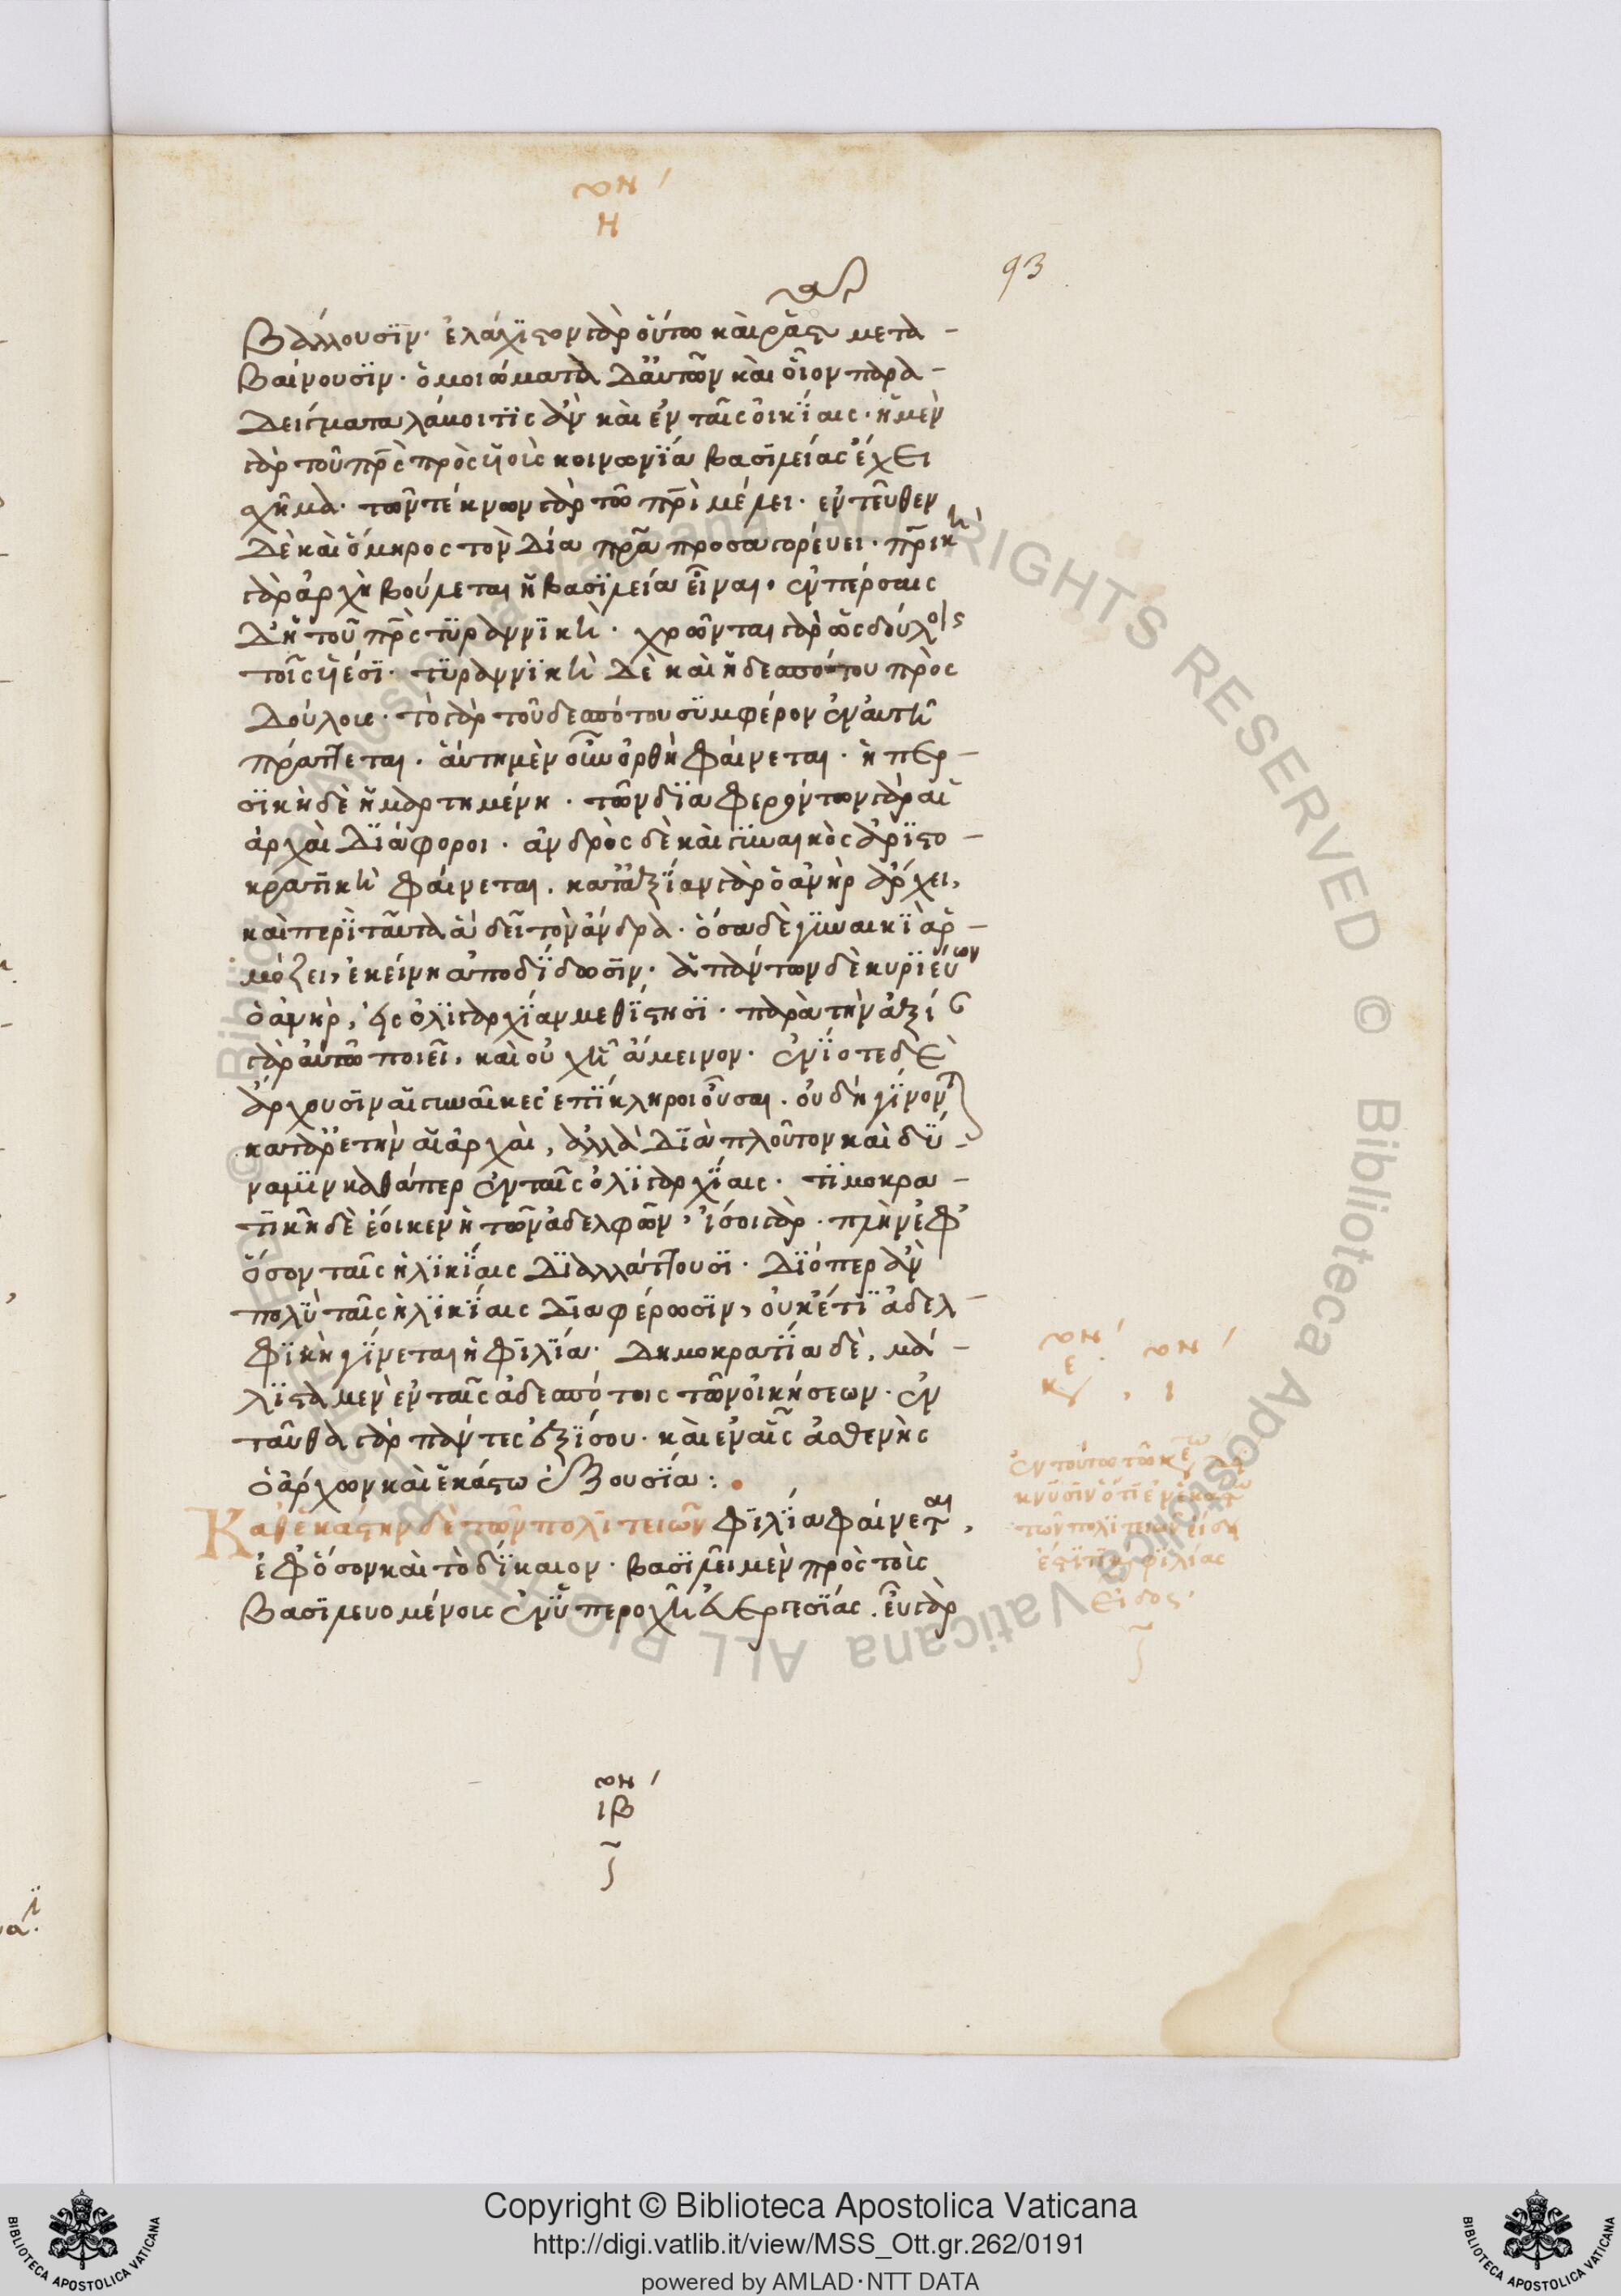 βάλλουσιν· ἐλάχιστον γὰρ οὕτω καὶ ῥᾷστα μετα-
βαίνουσιν· ὁμοιώματα δ' αὐτῶν καὶ οἷον παρα-
δείγματα λάβοι τις ἂν καὶ ἐν ταῖς οἰκίαις· ἡ μὲν
γὰρ τοῦ πρς πρὸς υἱοὺς κοινωνία βασιλείας ἔχει
σχῆμα· τῶν τέκνων γὰρ τῷ πρι μέλει· ἐντεῦθεν
δὲ καὶ ὅμηρος τὸν δία πρα προσαγορεύει· πρικὴ
γὰρ ἀρχὴ βούλεται ἡ βασιλεία εἶναι· ἐν πέρσαις
δ' ἡ τοῦ πρς τυραννικὴ· χρῶνται γὰρ ὡς δούλοις
τοῖς υἱέσι· τυραννικὴ δὲ καὶ ἡ δεσπότου πρὸς
δούλους· τὸ γὰρ τοῦ δεσπότου συμφέρον ἐν αὐτῇ
πράττεται· αὕτη μὲν οὖν ὀρθὴ φαίνεται· ἡ περ-
σικὴ δὲ ἡμαρτημένη· τῶν διαφερόντων γὰρ αἱ
ἀρχαὶ διάφοροι· ἀνδρὸς δὲ καὶ γυναικὸς ἀριστο-
κρατικὴ φαίνεται· κατ' ἀξίαν γὰρ ὁ ἀνὴρ ἄρχει,
καὶ περὶ ταῦτα ἃ δεῖ τὸν ἄνδρα· ὅσα δὲ γυναικὶ ἁρ-
μόζει, ἐκείνη ἀποδίδωσιν· ἁπάντων δὲ κυριεύων
ὁ ἀνὴρ, εἰς ὀλιγαρχίαν μεθίστησι· παρὰ τὴν ἀξίαν
γὰρ αὐτὸ ποιεῖ, καὶ οὐχ ᾗ ἄμεινον· ἐνίοτε δὲ
ἄρχουσιν αἱ γυναῖκες ἐπίκληροι οὖσαι· οὐ δὴ γίνονται
κατ' ἀρετὴν αἱ ἀρχαὶ, ἀλλὰ διὰ πλοῦτον καὶ δύ-
ναμιν καθάπερ ἐν ταῖς ὀλιγαρχίαις· τιμοκρα-
τικῇ δὲ ἔοικεν ἡ τῶν ἀδελφῶν, ἴσοι γὰρ· πλὴν ἐφ'
ὅσον ταῖς ἡλικίαις διαλλάττουσι· διόπερ ἂν
πολὺ ταῖς ἡλικίαις διαφέρωσιν, οὐκέτι ἀδελ-
φικὴ γίνεται ἡ φιλία· δημοκρατία δὲ, μά-
λιστα μὲν ἐν ταῖς ἀδεσπότοις τῶν οἰκήσεων· ἐν
ταῦθα γὰρ πάντες ἐξ ἴσου· καὶ ἐν αἷς ἀσθενὴς
ὁ ἄρχων καὶ ἑκάστω ἐξουσία:
Καθ' ἑκάστην δὲ τῶν πολιτειῶν φιλία φαίνεται,
ἐφ' ὅσον καὶ τὸ δίκαιον· βασιλεῖ μὲν πρὸς τοὺς
βασιλευομένους ἐν ὑπεροχῇ εὐεργεσίας· εὖ γὰρ
93